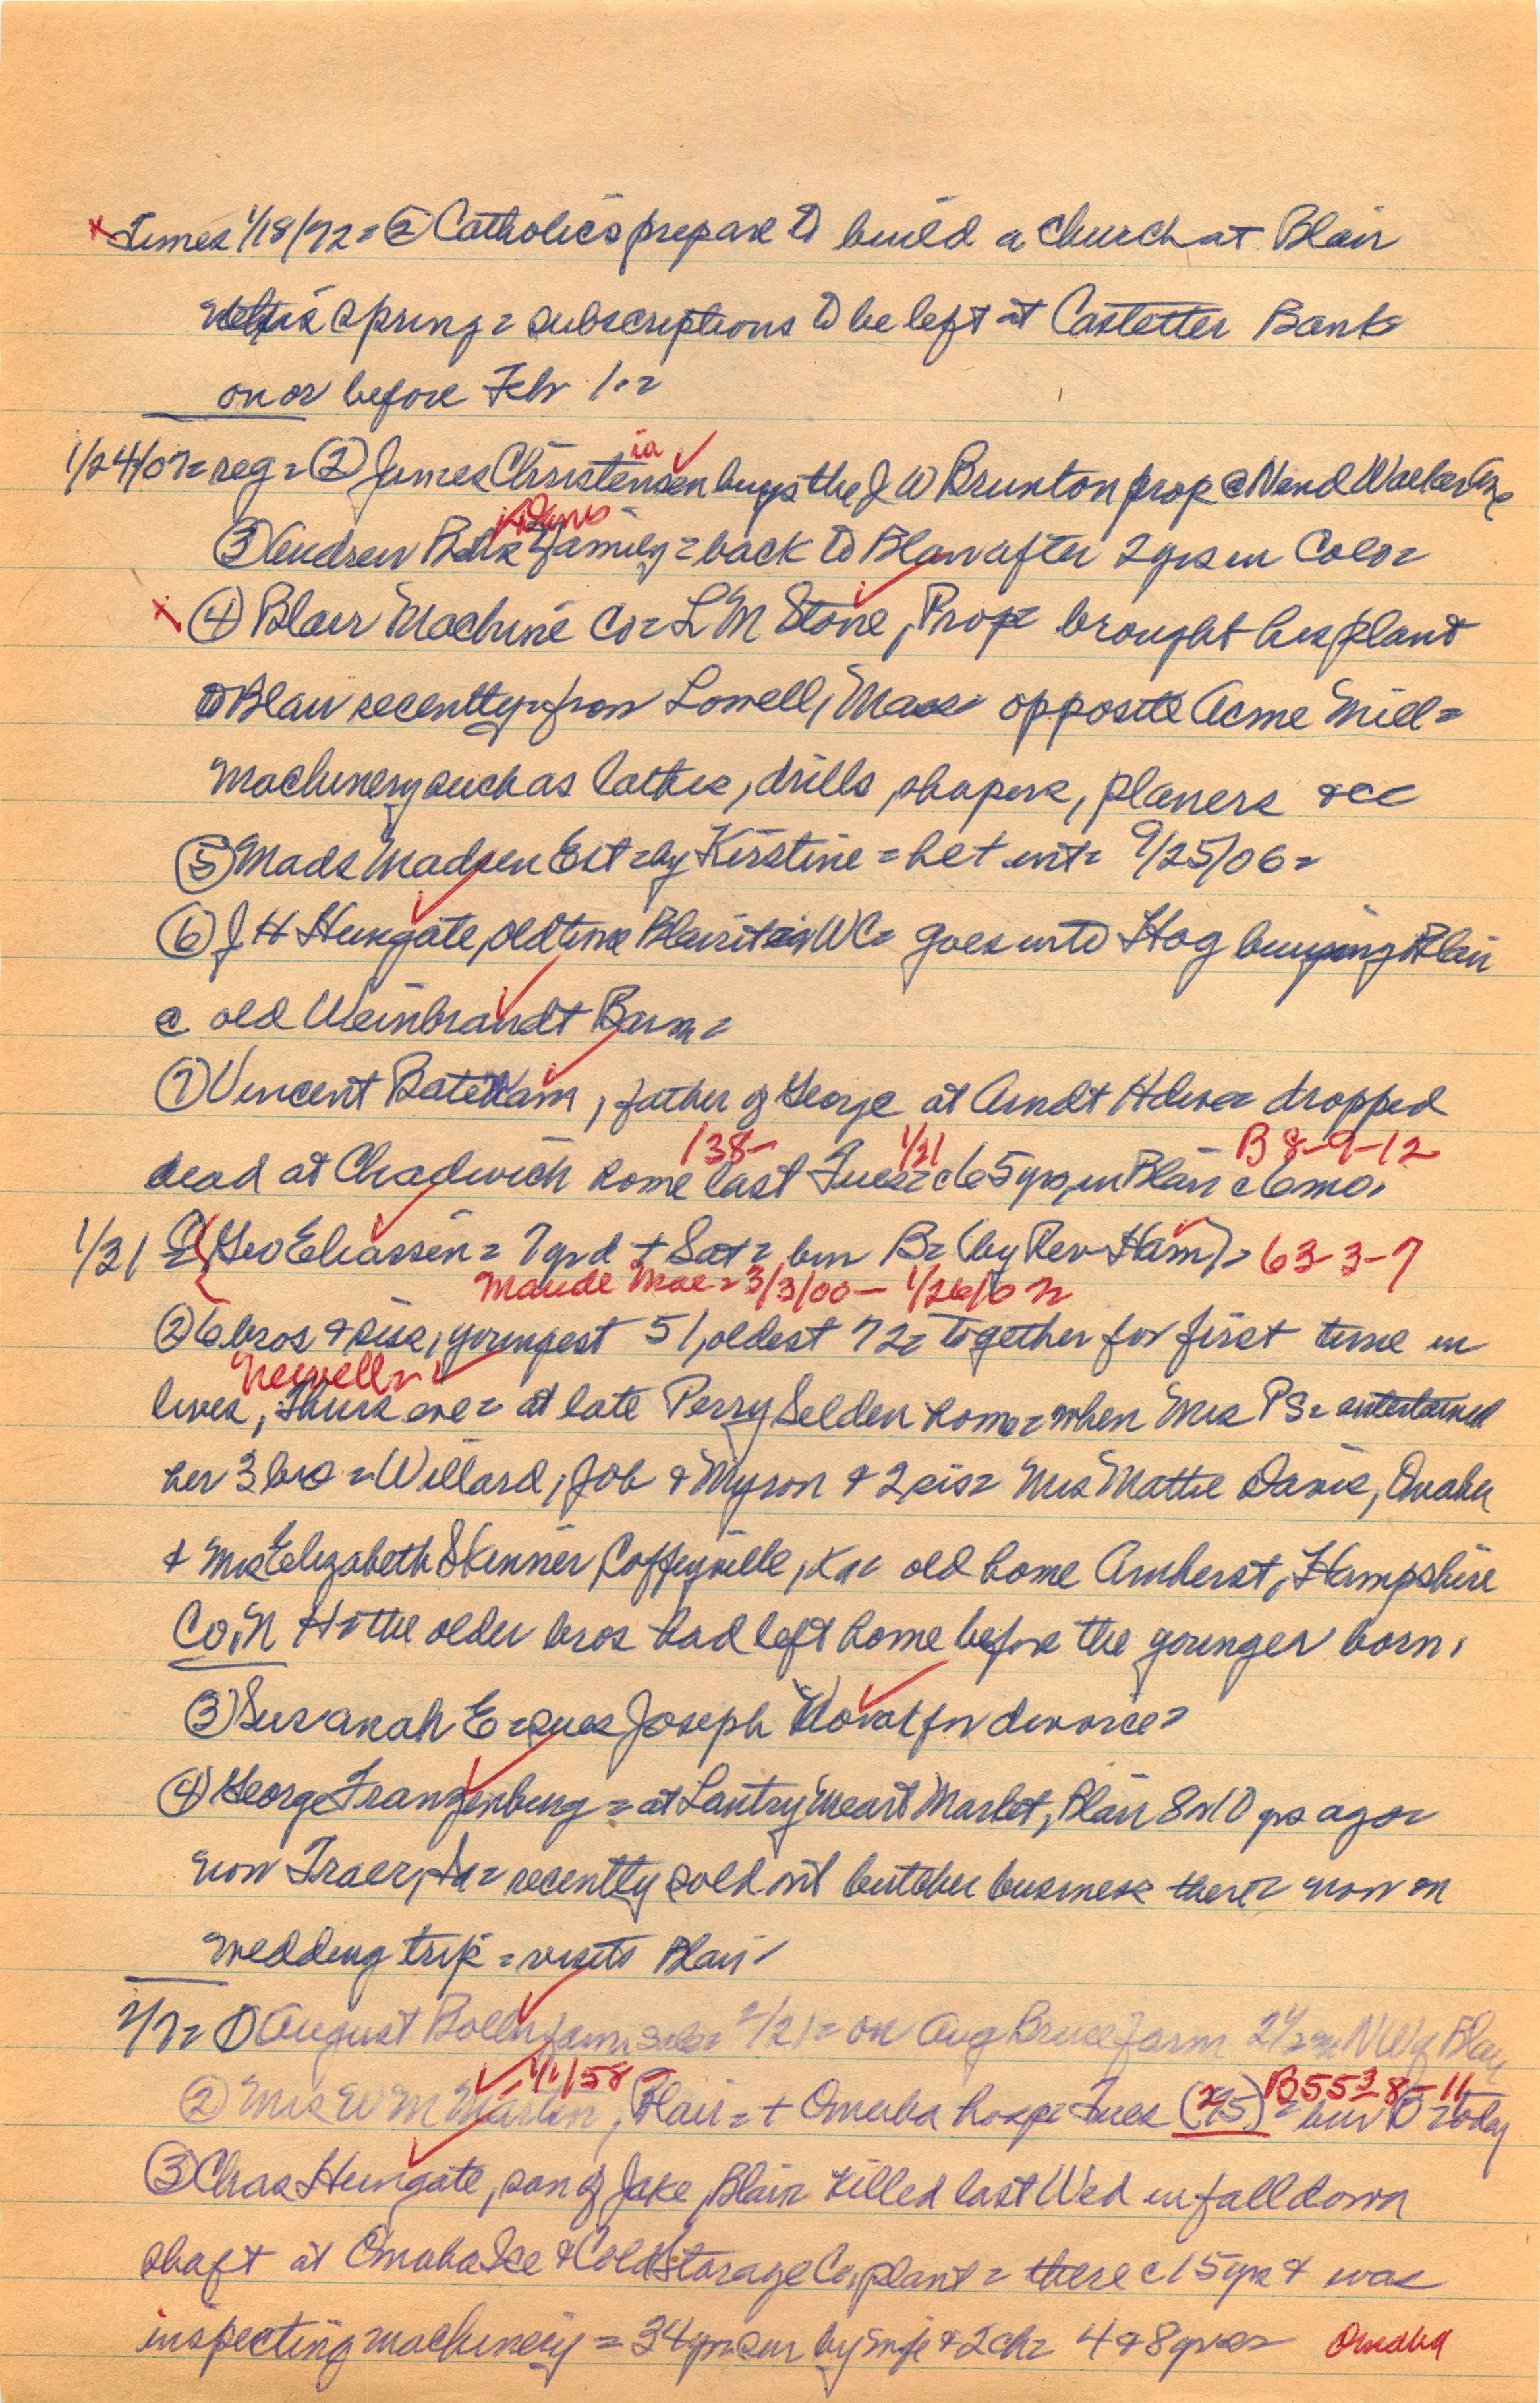 x Times 1/18/72 = ② Catholics prepare to build a church at Blair
this spring = subscriptions to be left at Castetter Bank
on or before Feb 1. =
1/24/07 = reg = ② James Christensen buys the J W Brunton prop @ N end Walker Ave
ia
③ Andrew & family = back to Blair after 2 yrs in Colo =
x ④ Blair Machine Co = L M Stone, Prop = brought his plant
to Blair recently from Lowell, Mass opposite Acme Mill =
Machinery such as lathes, drills, shapers, planers &cc
⑤ Mads Madsen Est = by Kirstine = het int = 9/25/06 =
⑥ J H Hungate, old time Blairite in WC = goes into Hog buying Blair
@ old Weinbrandt Barn =
⑦ Vincent Bateham, father of George at Arndt Hdwe = dropped
138- 1/21 B 8-9-12
dead at Chadwich home last Tues = c65 yrs, in Blair c6mo.
1/31 = Geo Eliassen = 7 yr d + Sat = bur B = (by Rev Ham) = 63-3-7
Maude Mae = 3/3/00 - 1/26/07
② 6 bros & sis, youngest 51, oldest 72 = together for first time in
Newell =
lives, Thurs eve = at late Perry Selden home = when Mrs PS = entertained
her 3 bro = Willard, Job & Myron & 2 sis = Mrs Mattie Davis, Omaha
& Mrs Elizabeth Skinner, Coffeyville, Ks = old home Amherst, Hampshire
Co, N H = the older bros had left home before the younger born.
③ Susanah E = sues Joseph for divorce =
④ George Franzenburg = at Lantry Meat Market, Blair 8 or 10 yrs ago =
now Traer, Ia = recently sold out butcher business there = now on
wedding trip = visits Blair
2/7 = ① August Bolln farm sale = 2/21 = on Aug Bruse farm 2 1/2 m NW of Blair
1/1/58 - B 55 38-11
② Mrs W M Martin, Blair = + Omaha hosp = Tues (2/5) = bur B = today
③ Chas Hungate, son of Jake, Blair killed last Wed in fall down
shaft at Omaha Ice & Cold Storage Co, plant = there c15 yrs & was
inspecting machinery = 34 yrs = sur by wife & 2 ch = 4 & 8 yrs = Omaha